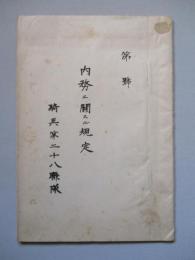 第 號
内務ニ關スル規定
騎兵第二十八聯隊